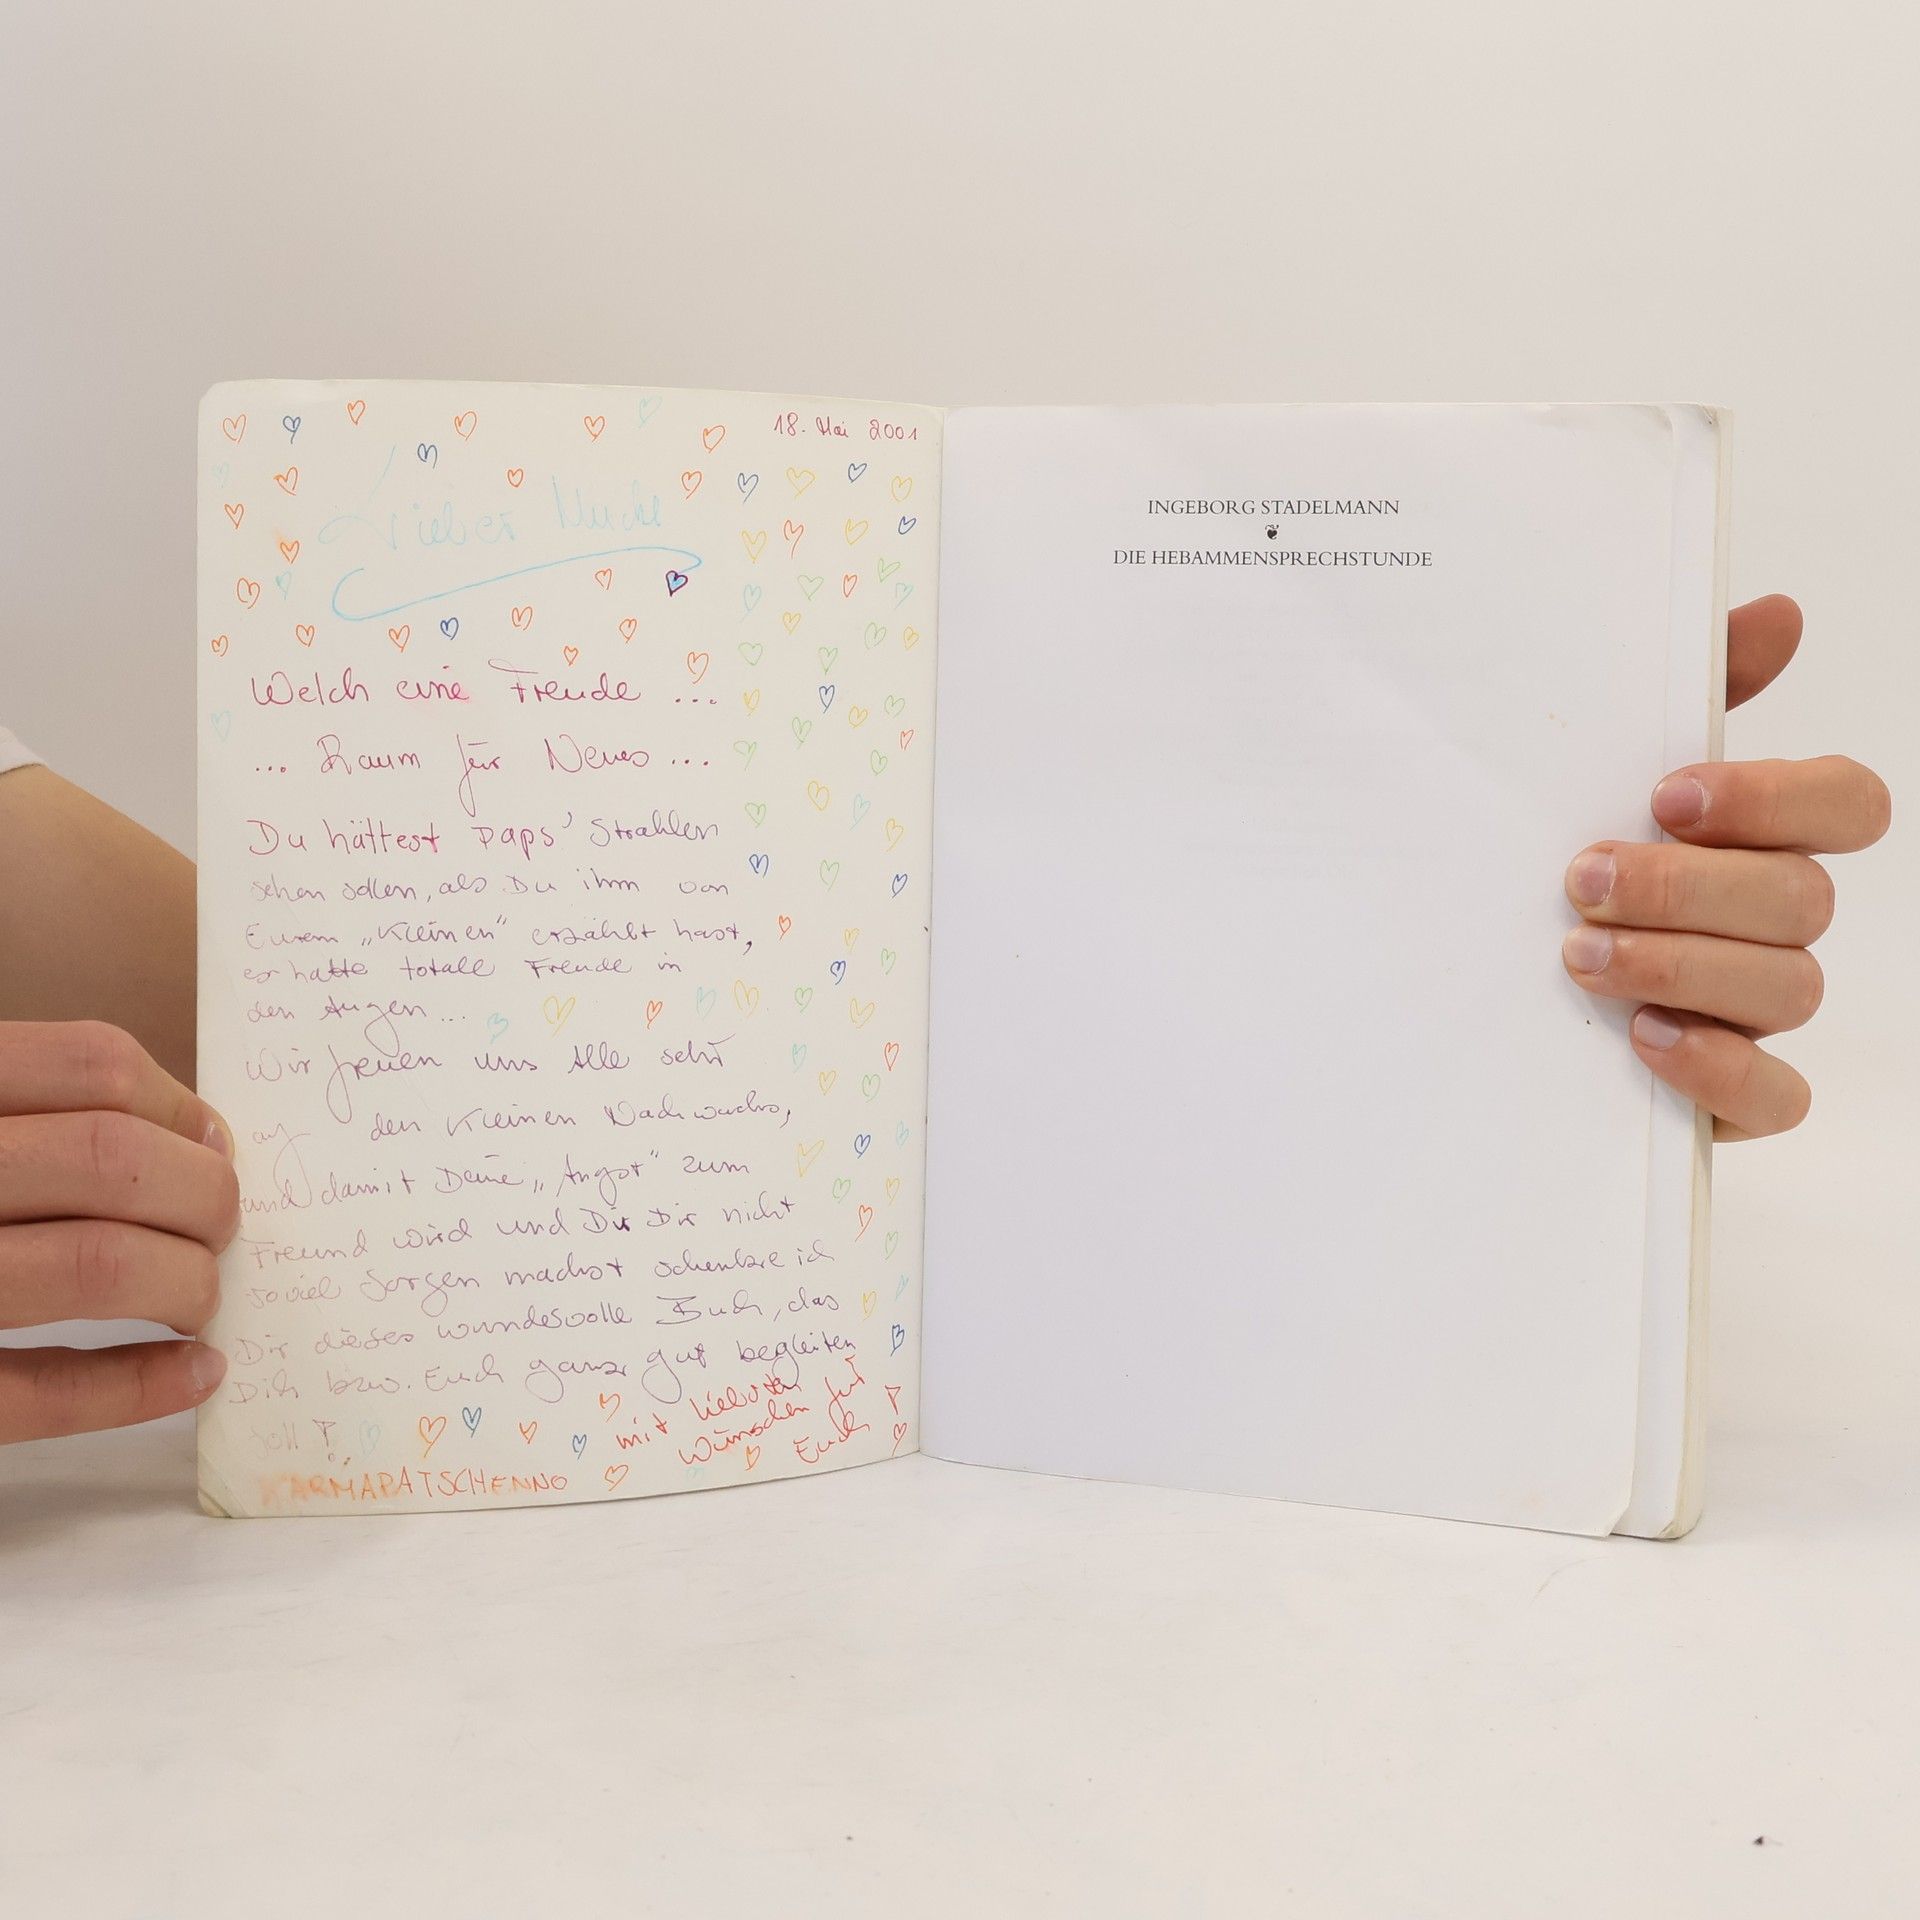 18. Mai 2001
Lieber
Welch eine Freude ...
... Raum für Neues ...
Du hättest Paps' Strahlen
sehen sollen, als Du ihm von
Eurem „Kleinen" erzählt hast,
er hatte totale Freude in
den Augen ...
Wir freuen uns Alle sehr
auf den Kleinen Nachwuchs,
und damit Deine „Angst" zum
Freund wird und Du Dir nicht
soviel Sorgen machst schenke ich
Dir dieses wundervolle Buch, das
Dich bzw. Euch ganz gut begleiten
soll!
mit liebsten
Wünschen für
Euch!
KARMAPATSCHENNO
INGEBORG STADELMANN
DIE HEBAMMENSPRECHSTUNDE